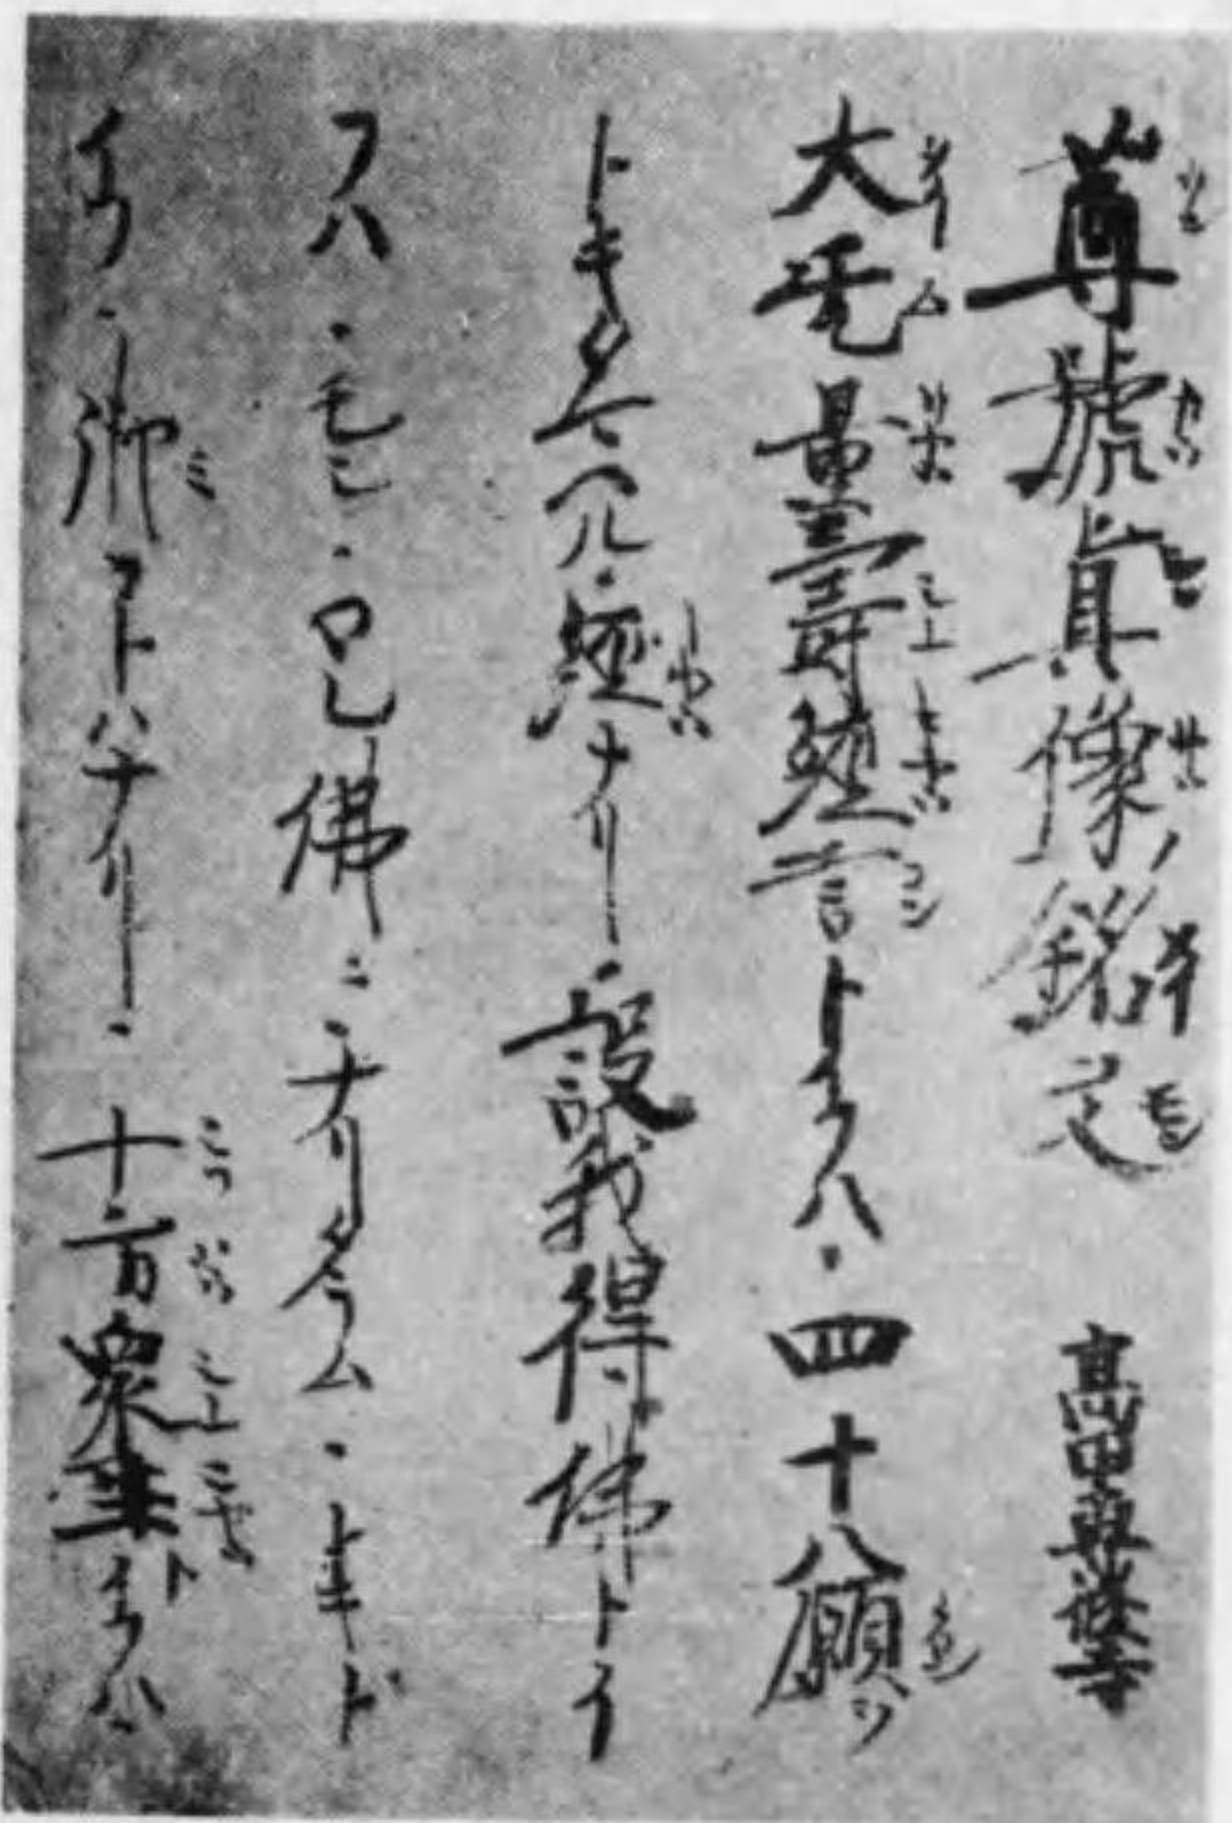 尊號眞像ノ銘文 高田專修寺
大无量壽經言トイフハ・四十八願ヲ
トキタマヘル・經ナリ・設我得佛トイ
フハ・モシ・ワレ佛ニ・ナリタラム・トキト
イフ・御コトハナリ・十方衆生トイフハ